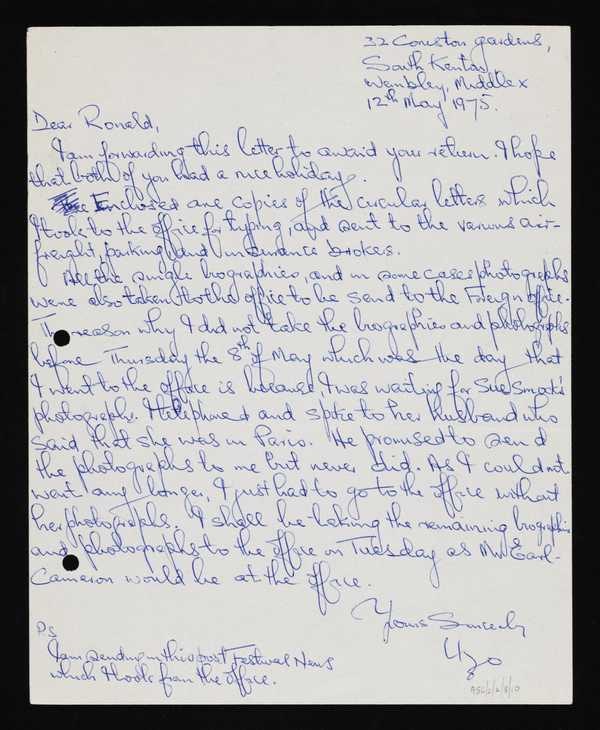 32 Coniston gardens,
South Kenton
Wembley, Middlex
12th May 1975.
Dear Ronald,
I am forwarding this letter to await your return. I hope
that both of you had a nice holiday.
Enclosed are copies of the circular letters which
I took to the office for typing, and sent to the various air-
freight, parking, and insurance brokes.
All the single biographies, and in some cases photographs
were also taken to the office to be send to the Foreign office.
The reason why I did not take the biographies and photographs
before Thursday the 8th of May which was the day that
I went to the office is because, I was waiting for Sue Smock's
photographs. I telephoned and spoke to her husband who
said that she was in Paris. He promised to send
the photographs to me but never did. As I could not
wait any longer, I just had to go to the office without
her photographs. I shall be taking the remaining biographies
and photographs to the office on Tuesday as Mr Earl-
Cameron would be at the office.
Yours Sincerely
Uzo
P.S.
I am sending in this post Festival News
which I took from the office.